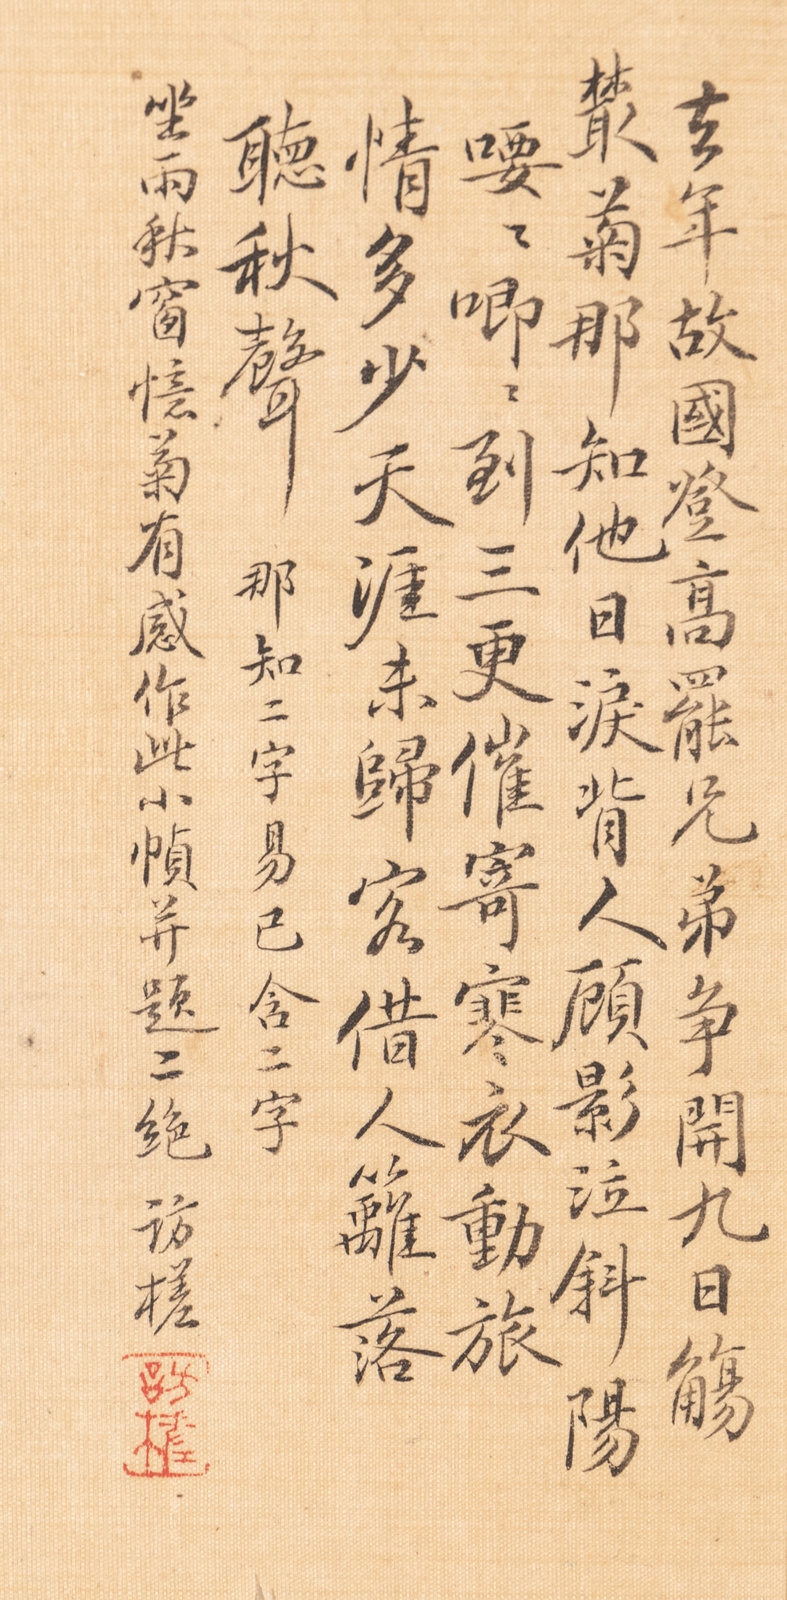 去年故國登高罷兄弟爭開九日觴
叢菊那知他日淚背人顧影泣斜陽
喓〻唧〻到三更催寄寒衣動旅
情多少天涯未歸客借人籬落
聽秋聲 那知二字易已含二字
坐雨秋窗憶菊有感作此小幀并題二絕 訪槎
訪槎